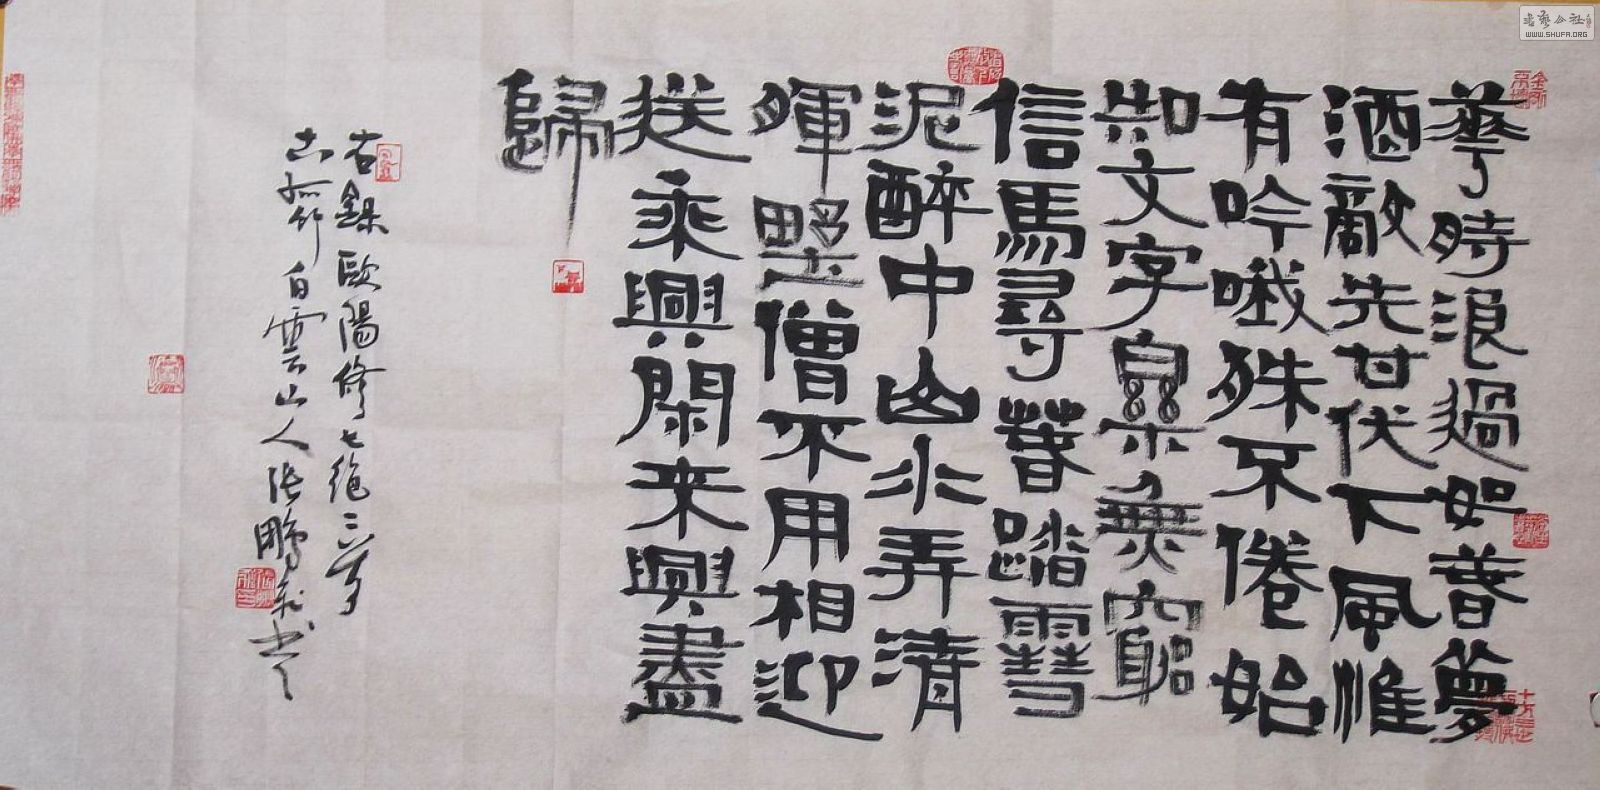 華時浪過如春夢
酒敵先甘伏下風惟
有吟哦殊不倦始
知文字樂無窮
信馬尋春踏雪
泥醉中山水弄清
暉野僧不用相迎
送乘興閑來興盡
歸
右錄歐陽修七絕二首
古孤竹白雲山人張鵬
書藝公社
WWW.SHUFA.ORG